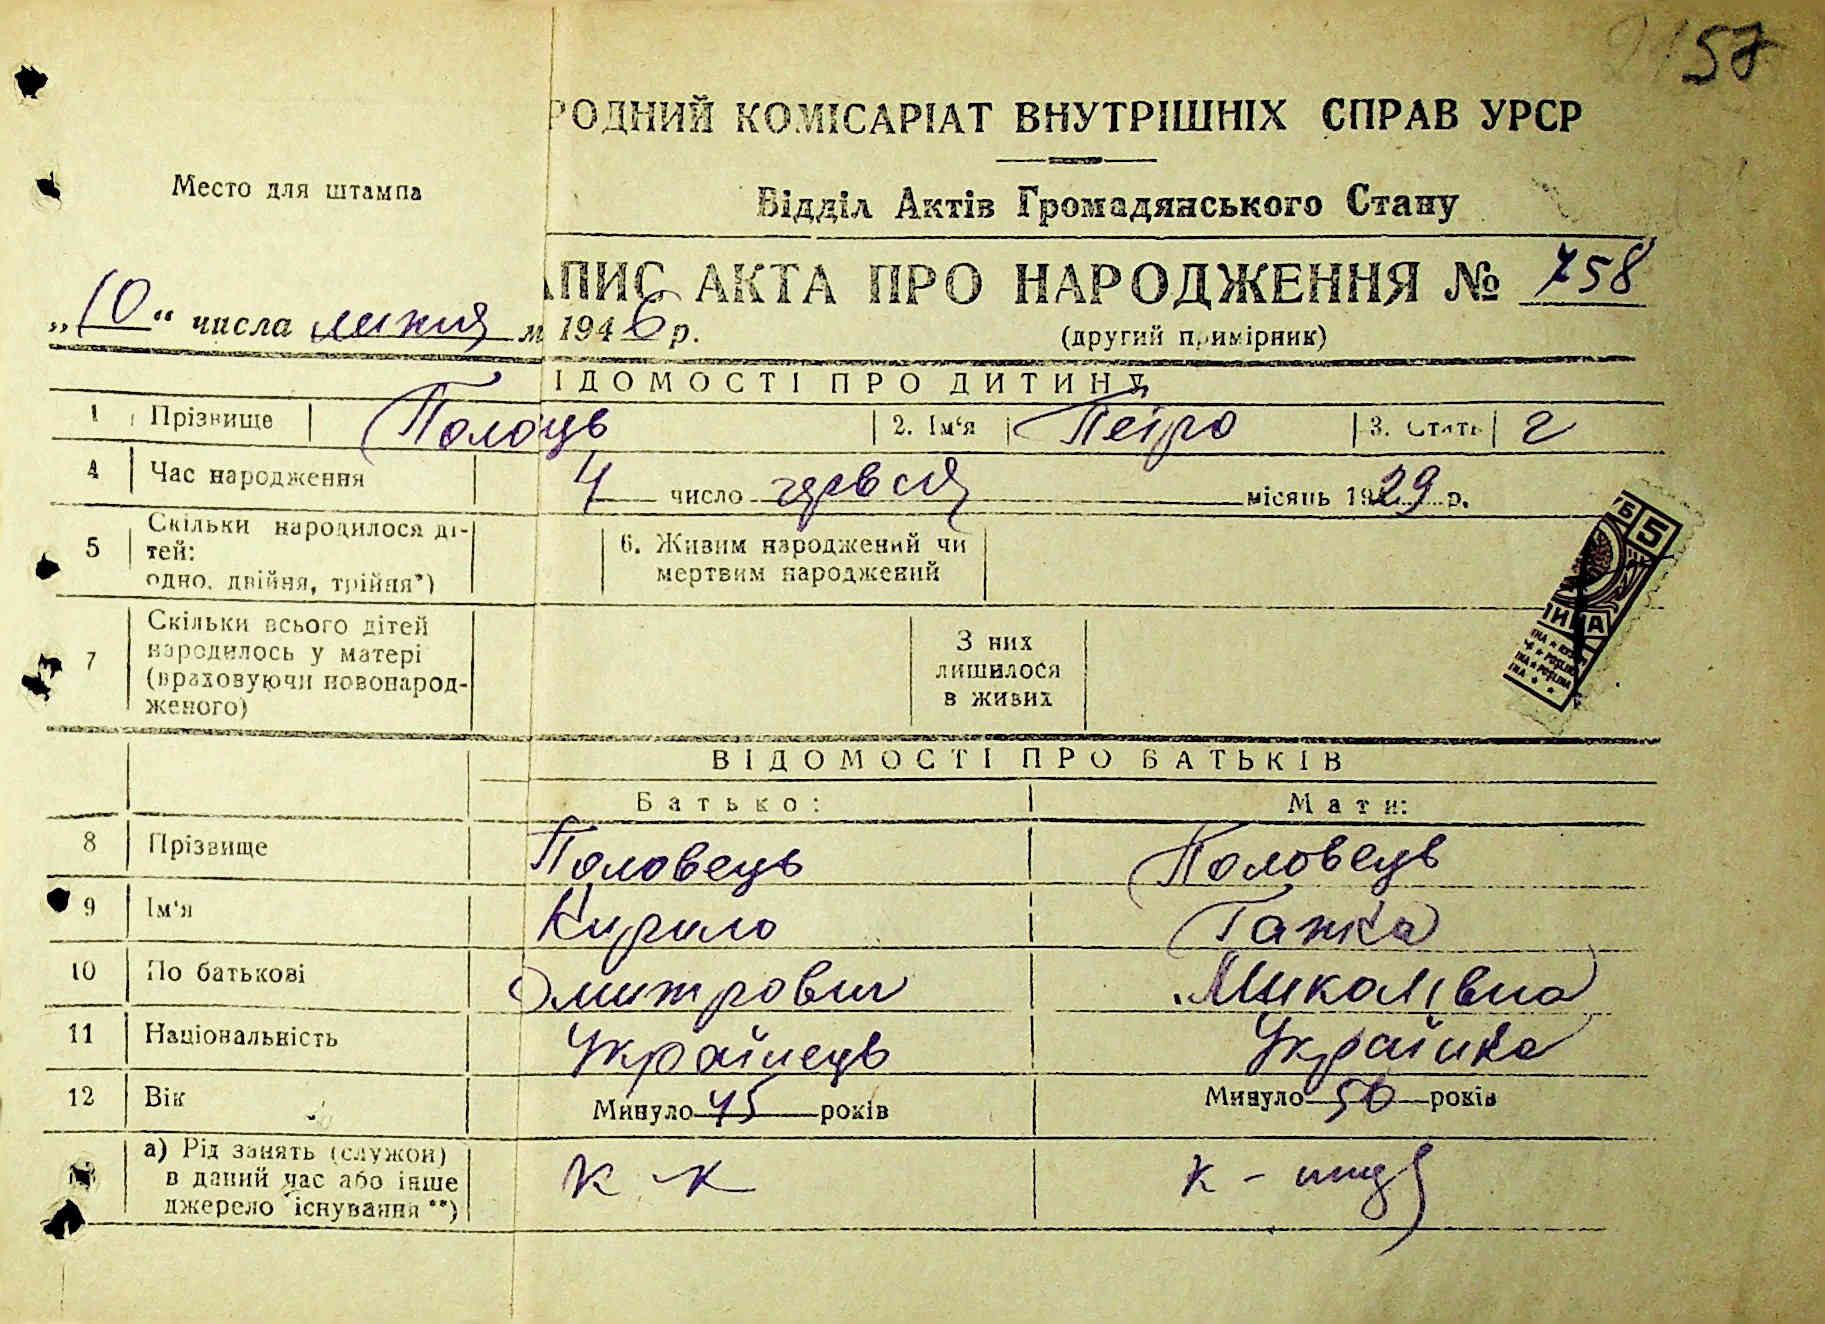 57
РОДНИЙ КОМІСАРІАТ ВНУТРІШНІХ СПРАВ УРСР
Место для штампа
Відділ Актів Громадянського Стану
АПИС АКТА ПРО НАРОДЖЕННЯ № 758
„10“ числа липня м 1946 р.
(другий примірник)
ІДОМОСТІ ПРО ДИТИНУ
1 Прізвище Полоць 2. Ім‘я Петро 3. Стать
4 Час народження 4 число червня місяць 1929 р.
5 Скільки народилося ді-
тей:
одно, двійня, трійня*)
6. Живим народжений чи
мертвим народжений
7 Скільки всього дітей
народилось у матері
(враховуючи новонарод-
женого)
З них
лишилося
в живих
Б 5
ИНА
ВІДОМОСТІ ПРО БАТЬКІВ
Батько: Мати:
8 Прізвище Половець Половець
9 Ім‘я Кирило Ганка
10 По батькові Дмитрович Миколівна
11 Національність Українець Українка
12 Вік Минуло 45 років Минуло 50 років
а) Рід занять (служби)
в даний час або інше
джерело існування **)
к-к к-